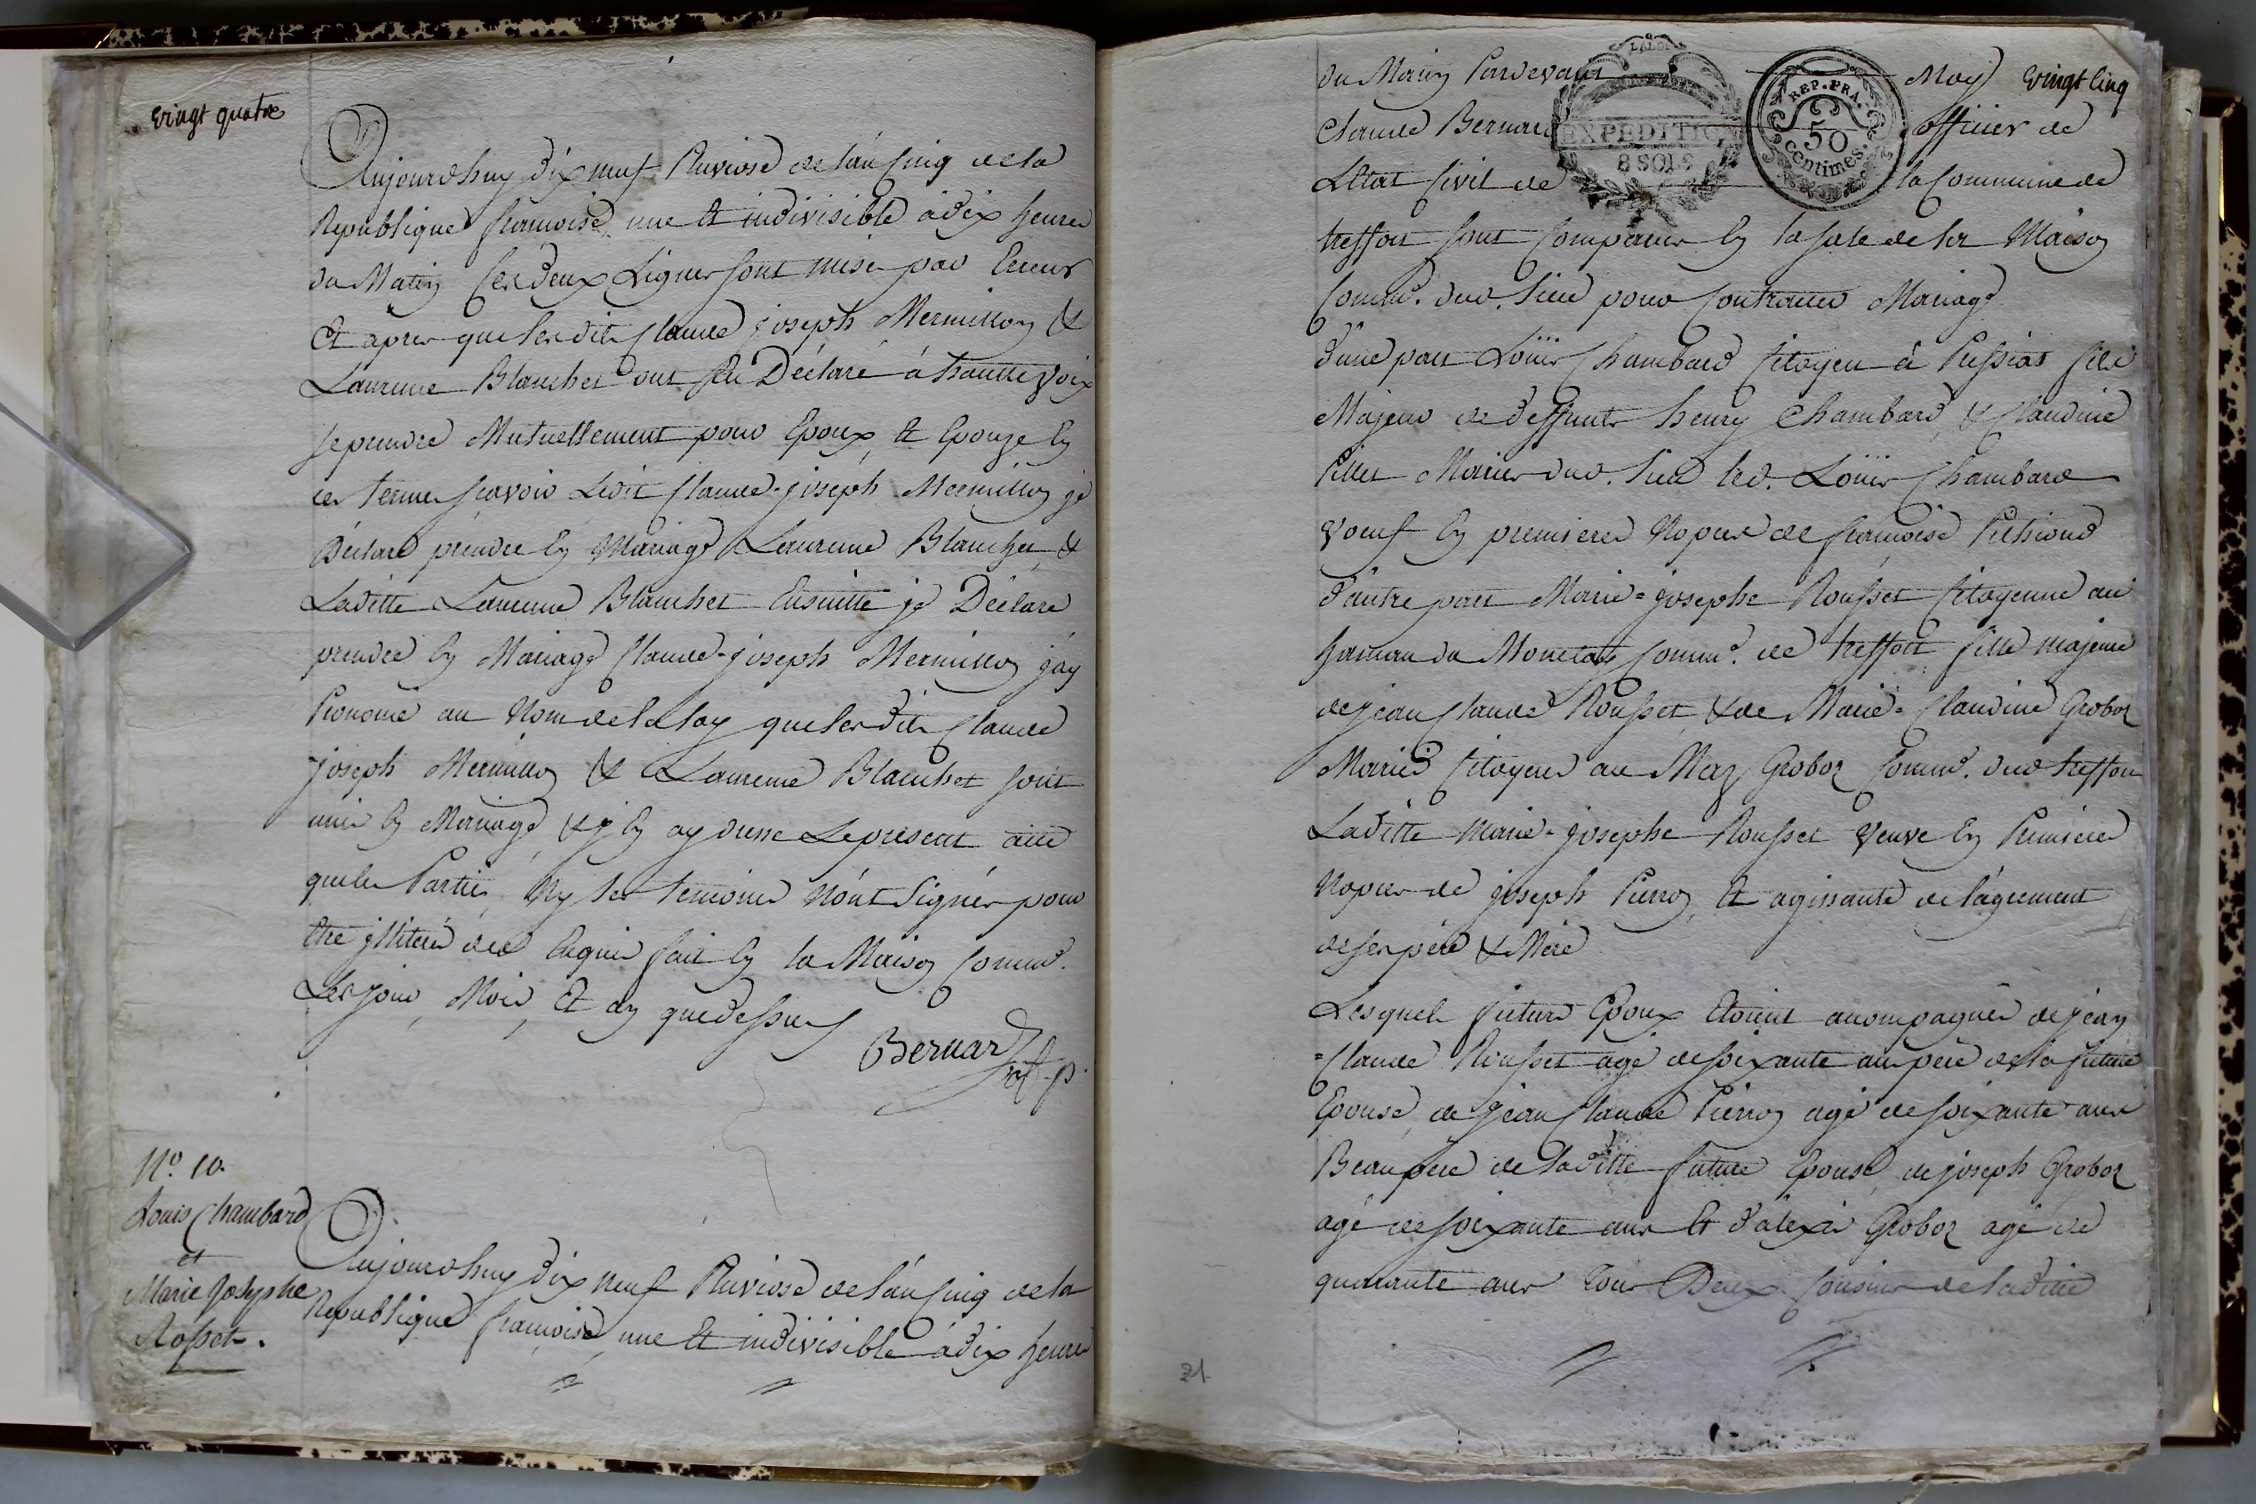 vingt quatre
Aujourdhuy dix neuf Pluviose de l'an Cinq de la
Republique francoise, une et indivisible à dix heures
du Matin Ces deux Lignes sont mise par Erreur
Et apres que lesdits Claude joseph Mermillon &
Laurence Blanchet ont Déclaré à haute voix
se prendre Mutuellement pour Epoux, et Epouze En
ces termes sçavoir Ledit Claude-joseph Mermillon je
Déclare prendre En Mariage Laurence Blanchet, &
Laditte Laurence Blanchet Ensuitte je Déclare
prendre En Mariage Claude-joseph Mermillon j'ay
Prononcé au Nom de la Loy que lesdits Claude
joseph Mermillon & Laurence Blanchet sont
unis En Mariage, & j'En ay dressé Le present acte
que les Parties, Ny les temoins N'ont Signés pour
être jlliteré de ce Enquis fait En la Maison Commne.
Les jour, Mois, Et an que dessus
Bernard off. p.
No. 10.
Louis Chambard
et
Marie Josephe
Rosset.
Aujourdhuy dix neuf Pluviose de l'an Cinq de la
Republique francoise, une Et indivisible à dix heures
du Matin Pardevant Moy vingt Cinq
Claude Bernard officier de
L'Etat Civil de la Commune de
treffort sont Comparus En la sale de la Maison
Commne. dud. lieu pour Contracter Mariage
d'une part Loüis Chambard Citoyen à Pressiat fils
Majeur de deffunts henry Chambard, & Claudine
Pillet Mariés dud. lieu led. Loüis Chambard
veuf En premieres Nopces de francoise
d'autre part Marie-josephe Rousset Citoyenne au
hameau du Commne. de treffort fille majeure
de jean Claude Rousset, & de Marie-Claudine Groboz
Mariés Citoyens au Maz Groboz Commne. dud treffort
Laditte Marie-josephe Rousset veuve En Premieres
Nopces de joseph Pierron, Et agissante de l'agrement
de ses père & Mère
Lesquels futurs Epoux Etoient accompagnés de jean
=Claude Rousset agé de soixante ans père de la future
Epouse, de jean Claude Pierron agé de soixante ans
Beaupère de laditte future Epouse, de joseph Groboz
agé de soixante ans Et d'alexis Groboz agé de
quarante ans tous Deux Cousins de laditte
LA LOI
EXPEDITION
8 SOLS
REP. FRA.
50
centimes.
21